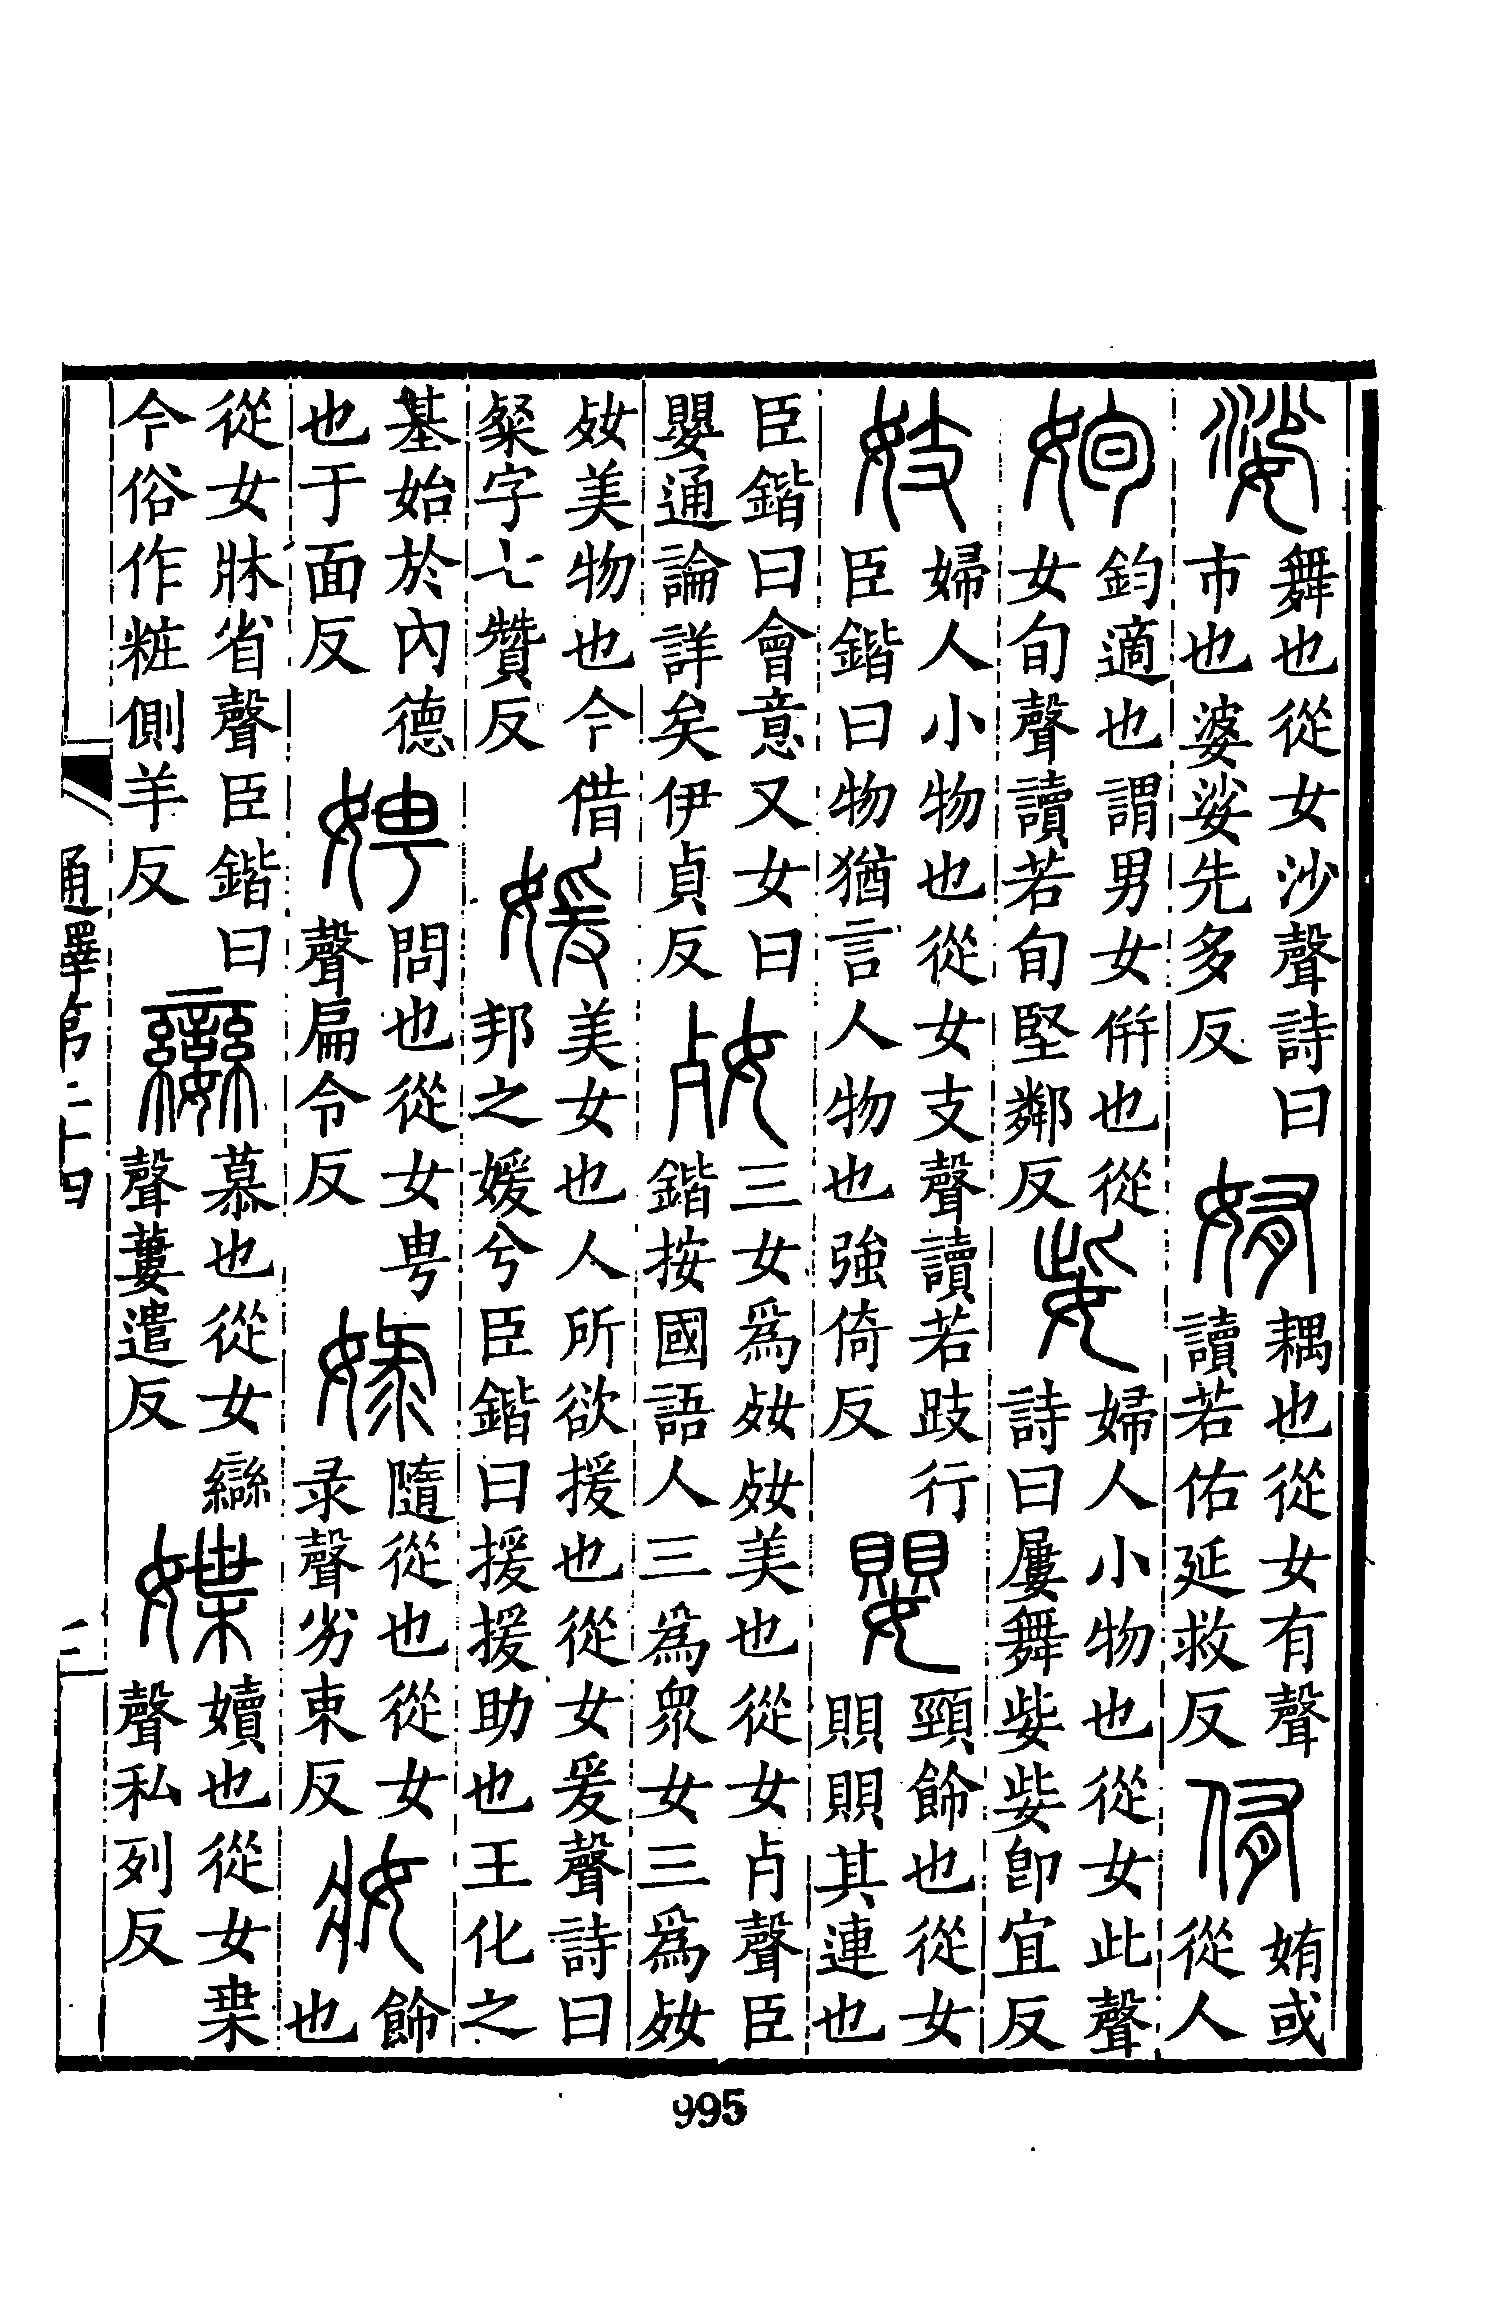 娑 舞也從女沙聲詩曰
市也婆娑先多反
姷 耦也從女有聲
讀若佑延救反
侑 姷或
從人
姰 鈞適也謂男女倂也從
女旬聲讀若旬堅鄰反
姕 婦人小物也從女此聲
詩曰屢舞姕姕卽宜反
妓 婦人小物也從女支聲讀若跂行
臣鍇曰物猶言人物也強倚反
嬰 頸飾也從女
賏賏其連也
臣鍇曰會意又女曰
嬰通論詳矣伊貞反
㚢 三女爲㚢㚢美也從女𣦼聲臣
鍇按國語人三爲眾女三爲㚢
㚢美物也今借
粲字七贊反
媛 美女也人所欲援也從女爰聲詩曰
邦之媛兮臣鍇曰援援助也王化之
基始於內德
也于面反
娉 問也從女甹
聲扁令反
娽 隨從也從女
录聲劣束反
妝 飾
也
從女牀省聲臣鍇曰
今俗作粧側羊反
孌 慕也從女䜌
聲蔞遣反
媟 嬻也從女枼
聲私列反
通釋第二十四
三
995